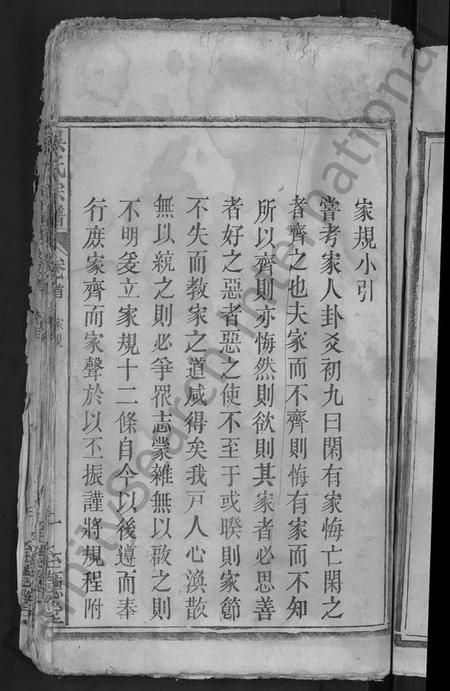 家規小引
嘗考家人卦爻初九曰閑有家悔亡閑之
者齊之也夫家而不齊則悔有家而不知
所以齊則亦悔然則欲則其家者必思善
者好之惡者惡之使不至于或睽則家節
不失而教家之道咸得矣我戸人心渙散
無以統之則必爭眾志蒙雜無以啟之則
不明爰立家規十二條自今以後遵而奉
行庶家齊而家聲於以丕振謹將規程附
氏宗譜
卷首
家規
FamilySearch International